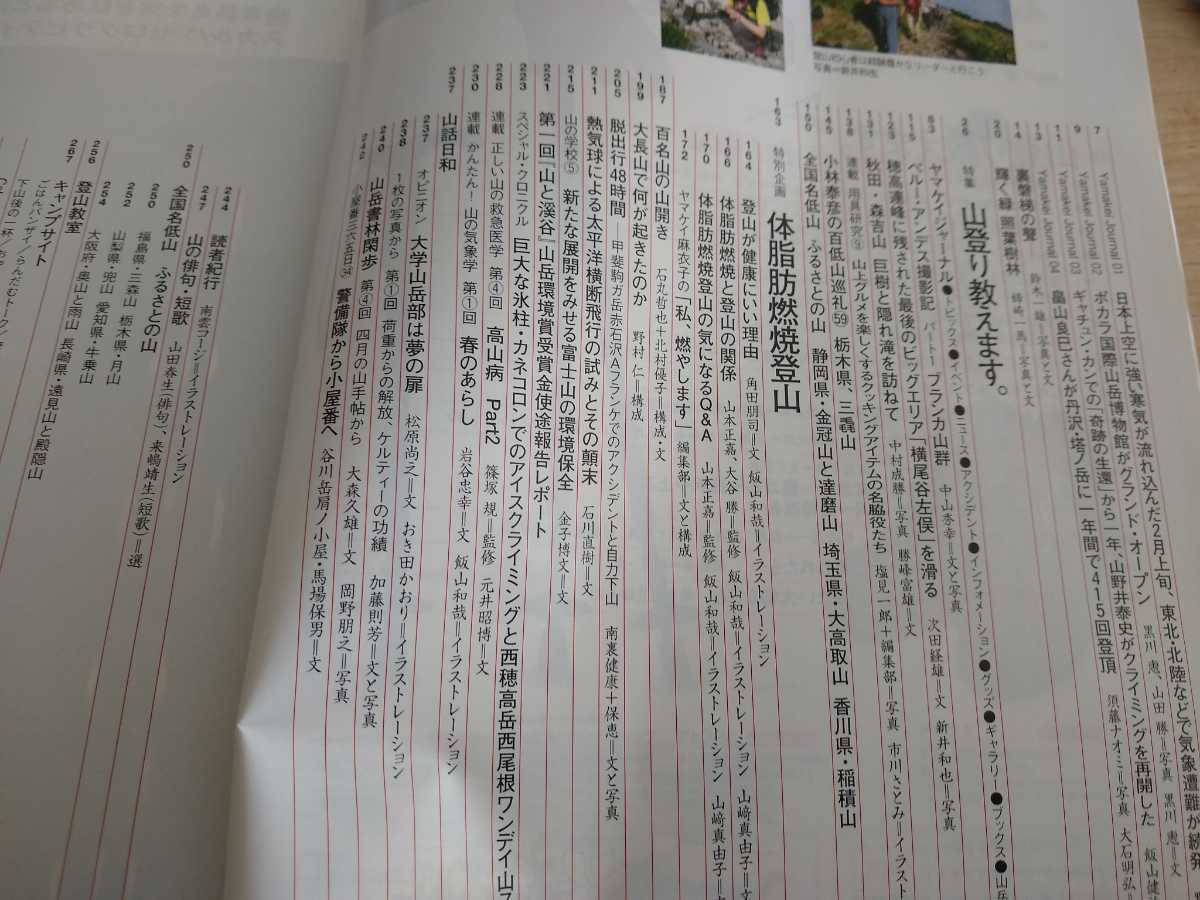 登山初心者は経験豊かなリーダーと行こう
写真=新井和也
7 Yamakei Journal 01 日本上空に強い寒気が流れ込んだ2月上旬、東北・北陸などで気象遭難が続発
Yamakei Journal 02 ポカラ国際山岳博物館がグランド・オープン 黒川 恵、山田 勝=写真 黒川 恵=文
9 Yamakei Journal 03 ギャチュン・カンでの「奇跡の生還」から一年、山野井泰史がクライミングを再開した
11 Yamakei Journal 04 畠山良巳さんが丹沢・塔ノ岳に一年間で415回登頂 須藤ナオミ=写真 大石明弘
13 裏磐梯の聲 鈴木一雄=写真と文
14 輝く緑 照葉樹林 姉崎一馬=写真と文
25 特集 山登り教えます。
26
ヤマケイジャーナル●トピックス●イベント●ニュース●アクシデント●インフォメーション●グッズ●ギャラリー●ブックス●山岳
83 ペルー・アンデス撮影記 パート1 ブランカ山群 中山秀幸=文と写真
115 穂高連峰に残された最後のビッグエリア「横尾谷左俣」を滑る 次田経雄=文 新井和也=写真
123 秋田・森吉山 巨樹と隠れ滝を訪ねて 中村成勝=写真 勝峰富雄=文
131 連載 用具研究⑨ 山上グルメを楽しくするクッキングアイテムの名脇役たち 塩見一郎+編集部=写真 市川さとみ=イラスト
138 小林泰彦の百低山巡礼59 栃木県、三毳山
145 全国名低山 ふるさとの山 静岡県・金冠山と達磨山 埼玉県・大高取山 香川県・稲積山
150
163 特別企画 体脂肪燃焼登山
164 登山が健康にいい理由 角田朋司=文 飯山和哉=イラストレーション
166 体脂肪燃焼と登山の関係 山本正嘉、大谷 勝=監修 飯山和哉=イラストレーション 山﨑真由子=文
170 体脂肪燃焼登山の気になるQ&A 山本正嘉=監修 飯山和哉=イラストレーション 山﨑真由子=
172 ヤマケイ麻衣子の「私、燃やします」 編集部=文と構成
187 百名山の山開き 石丸哲也+北村優子=構成・文
199 大長山で何が起きたのか 野村 仁=構成
205 脱出行48時間 甲斐駒ガ岳赤石沢Aフランケでのアクシデントと自力下山 南裏健康+保恵=文と写真
211 熱気球による太平洋横断飛行の試みとその顛末 石川直樹=文
215 山の学校⑤ 新たな展開をみせる富士山の環境保全 金子博文=文
221 第一回『山と溪谷』山岳環境賞受賞金使途報告レポート
223 スペシャル・クロニクル 巨大な氷柱・カネコロンでのアイスクライミングと西穂高岳西尾根ワンデイ山ス
228 連載 正しい山の救急医学 第④回 高山病 Part2 篠塚 規=監修 元井昭博=文
230 連載 かんたん!山の気象学 第①回 春のあらし 岩谷忠幸=文 飯山和哉=イラストレーション
237 山話日和
237 オピニオン 大学山岳部は夢の扉 松原尚之=文 おき田かおり=イラストレーション
238 1枚の写真から 第①回 荷重からの解放、ケルティーの功績 加藤則芳=文と写真
240 山岳書林閑歩 第④回 四月の山手帖から 大森久雄=文 岡野朋之=写真
242 小屋番三六五日 警備隊から小屋番へ 谷川岳肩ノ小屋・馬場保男=文
244 読者紀行 南雲フージ=イラストレーション
247 山の俳句・短歌 山田春生(俳句)、来嶋靖生(短歌)=選
250 全国名低山 ふるさとの山
250 福島県・三森山 栃木県・月山
252 山梨県・兜山 愛知県・牛乗山
254 大阪府・奥山と雨山 長崎県・遠見山と殿隠山
256 登山教室
267 キャンプサイト
ごはんバンザイ/らんだむトーク
下山後の一杯/お